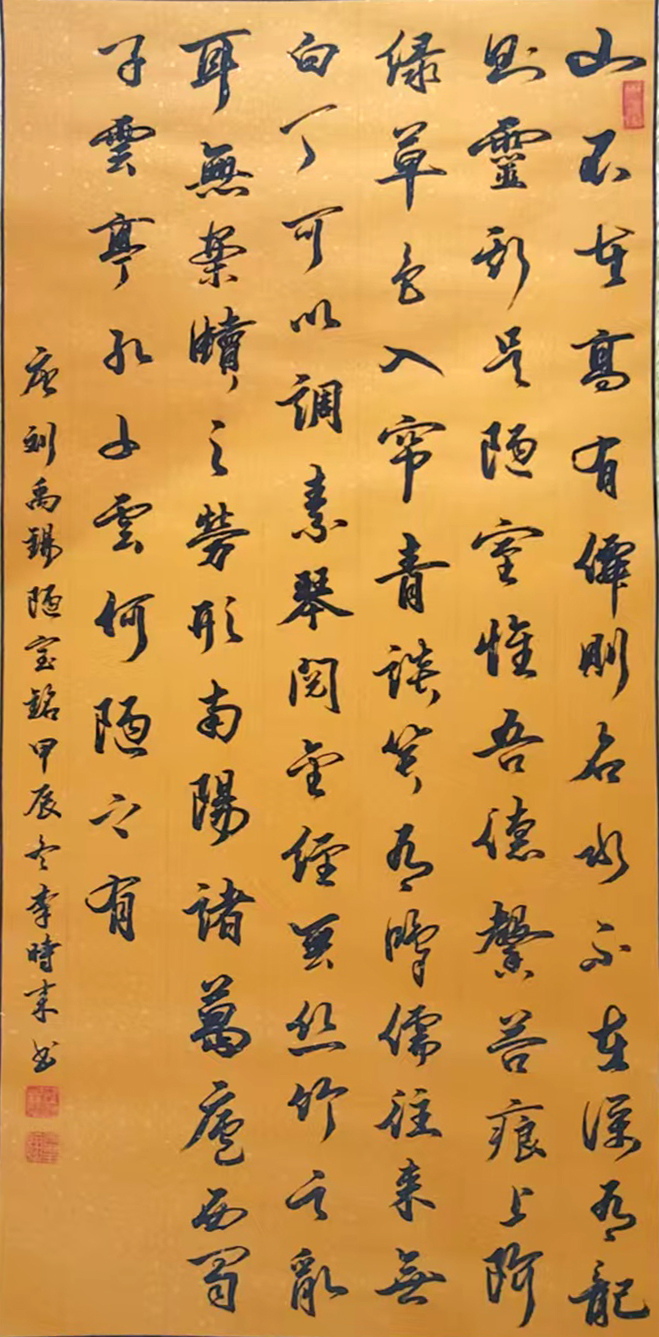 山不在高有僊則名水不在深有龍
则靈斯是陋室惟吾德馨苔痕上阶
绿草色入帘青談笑有鴻儒往来無
白丁可以調素琴閱金經無丝竹之亂
耳無案牘之勞形南陽諸葛廬西蜀
子雲亭孔子雲何陋之有
唐刘禹錫陋室銘甲辰冬李時来书